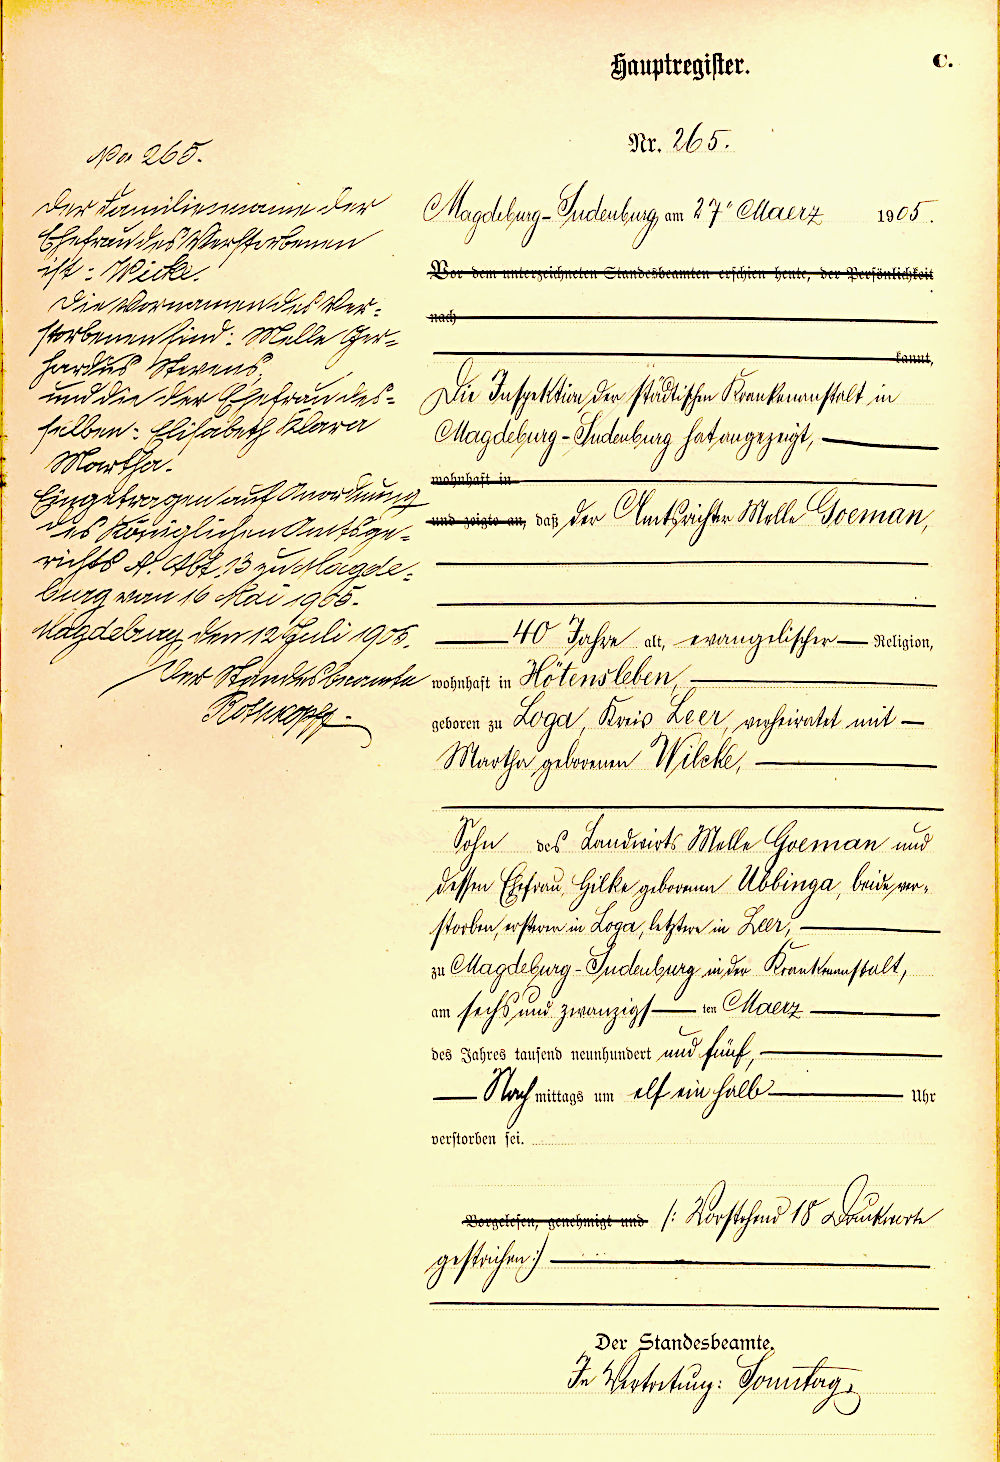 Hauptregister.
C.
Nr. 265.
No 265.
Der Familienname der
Ehefrau des Verstorbenen
ist: Wicke.
Die Vornamen des Ver-
storbenen sind: Melle Ger-
hardus Stevens,
und die der Ehefrau des-
selben: Elisabeth Klara
Martha.
Eingetragen auf Anordnung
des Königlichen Amtsge-
richts A. Abt. 13 zu Magde-
burg vom 16 Mai 1905.
Magdeburg, den 12 Juli 1905.
Der Standesbeamte
Magdeburg-Sudenburg, am 27ⁿ Maerz 1905.
Vor dem unterzeichneten Standesbeamten erschien heute, der Persönlichkeit
nach
kannt,
Die Inspektion der städtischen Krankenanstalt in
Magdeburg-Sudenburg hat angezeigt,
wohnhaft in
und zeigte an, daß der Amtsrichter Melle Goeman,
40 Jahre alt, evangelischer Religion,
wohnhaft in Hötensleben,
geboren zu Loga, Kreis Leer, verheiratet mit
Martha geborenen Wilcke,
Sohn des Landwirts Melle Goeman und
dessen Ehefrau, Hilke geborenen Ubbinga, beide ver-
storben, ersterer in Loga, letztere in Leer,
zu Magdeburg-Sudenburg in der Krankenanstalt,
am sechs und zwanzigsten Maerz
des Jahres tausend neunhundert und fünf,
Nachmittags um elf ein halb Uhr
verstorben sei.
Vorgelesen, genehmigt und /: Vorstehend 18 Druckworte
gestrichen :/
Der Standesbeamte.
In Vertretung: Sonntag.